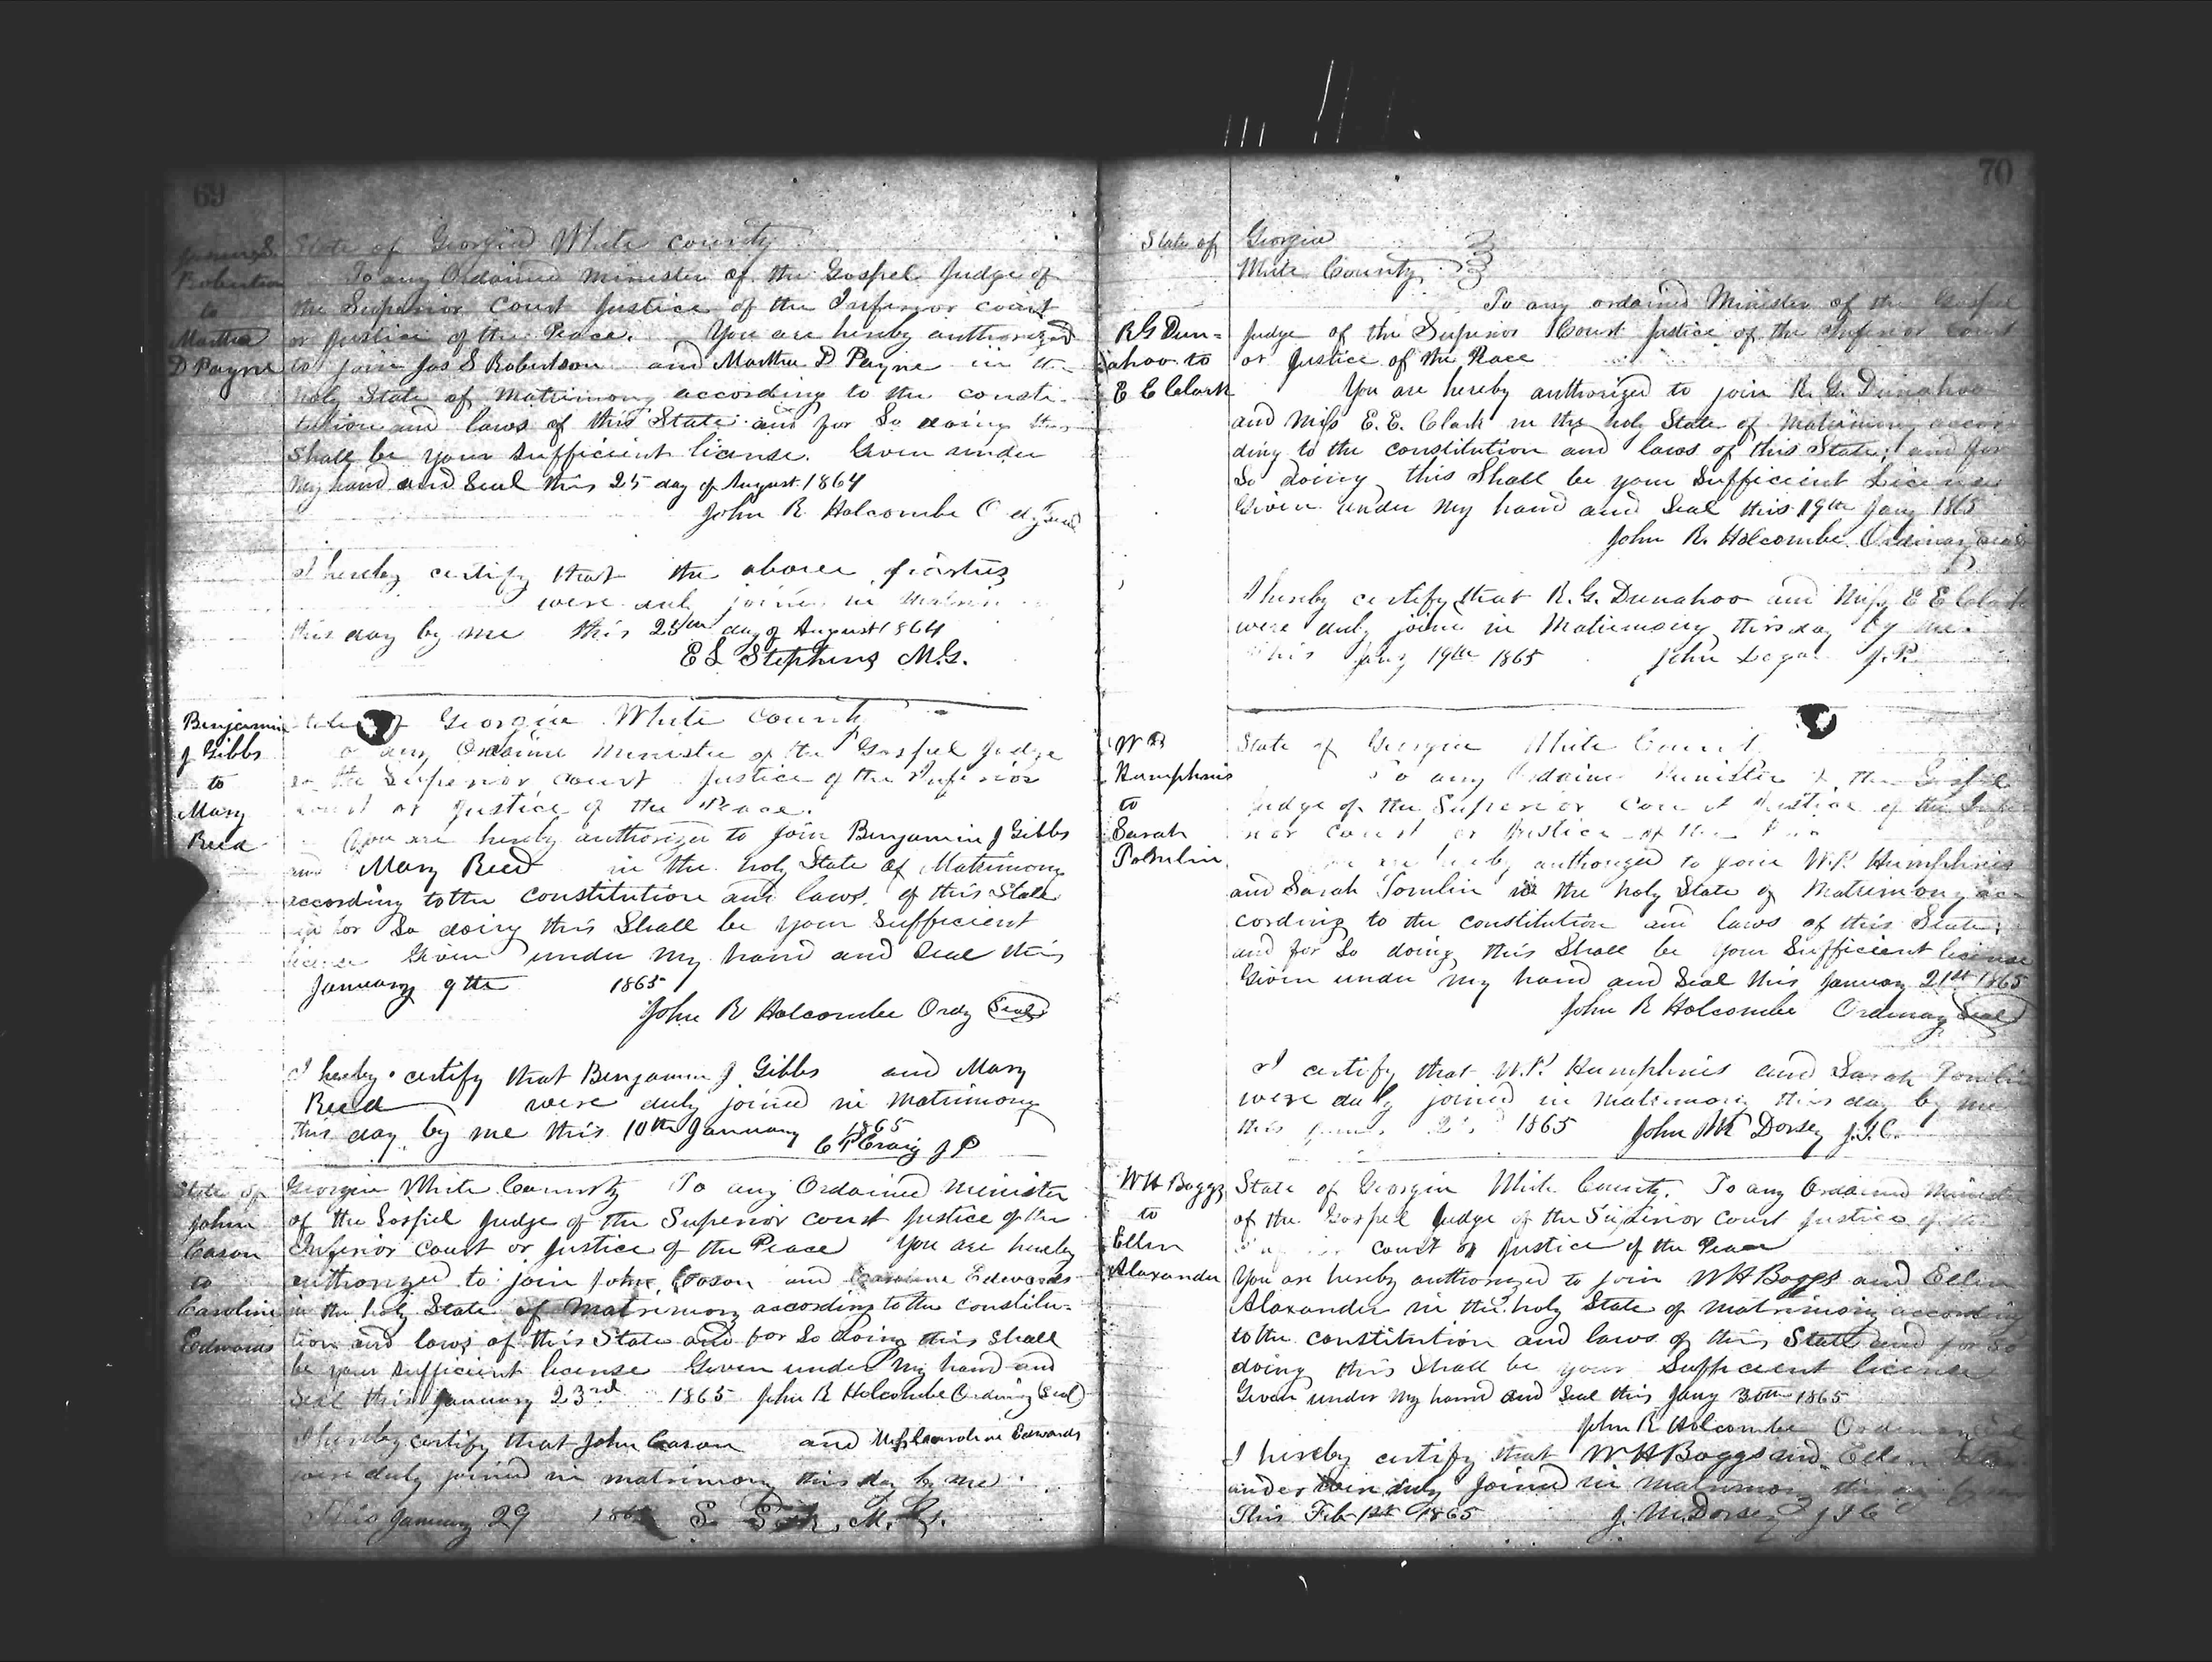 69
James S.
Robertson
to
Martha
D Payne
State of Georgia White county
To any Ordained minister of the Gospel Judge of
the Superior Court Justice of the Inferior court
or Justice of the Peace. You are hereby authorized
to join Jas S Robertson and Martha D Payne in the
holy State of matrimony according to the consti-
tution and laws of this State and for So doing this
Shall be your sufficient license. Given under
My hand and Seal this 25 day of August 1864
John R Holcombe Ordy Seal
I hereby certify that the above parties
were duly joined in
this day by me this 25th day of August 1864
E L Stephens M.G.
Benjamin
J Gibbs
to
Mary
Reed
of Georgia White County
any Ordaine Minister of the Gospel Judge
the Superior Court Justice of the Inferior
court or Justice of the Peace.
You are hereby authorized to join Benjamin J Gibbs
and Mary Reed in the holy State of Matrimony
according to the constitution and laws of this State
for So doing this Shall be your Sufficient
license Given under my hand and Seal this
January 9th 1865
John R Holcombe Ordy Seal
I hereby certify that Benjamin J Gibbs and Mary
Reed were duly joined in matrimony
this day by me this 10th January 1865
C P Craig J P
State of
John
Cason
to
Caroline
Edwards
Georgia White County To any Ordained minister
of the Gospel Judge of the Superior court Justice of the
Inferior Court or Justice of the Peace You are hereby
authorized to join John Cason and Caroline Edwards
in the holy State of Matrimony according to the constitu-
tion and laws of this State and for So doing this Shall
be your sufficient license Given under My hand and
Seal this January 23rd 1865 John R Holcombe Ordinary (Seal)
I hereby certify that John Cason and Miss Caroline Edwards
were duly joined in matrimony this day by me
This January 29 S. M. G.
70
State of Georgia
White County
R G Dun-
ahoo to
E E Clark
To any ordained Minister of the Gospel
Judge of the Superior Court Justice of the Inferior court
or Justice of the Peace
You are hereby authorized to join R. G. Dunahoo
and Miss E. E. Clark in the holy State of Matrimony accor
ding to the constitution and laws of this State; and for
So doing this Shall be your Sufficient License
Given under My hand and Seal this 19th Jany 1865
John R. Holcombe Ordinary Seal
I hereby certify that R. G. Dunahoo and Miss E E Clark
were duly joined in Matrimony this day by me
this Jany 19th 1865 John Logan J.P.
W P
Humphries
to
Sarah
Tomlin
State of Georgia White County
To any Ordained Minister of the Gospel
Judge of the Superior Court Justice of the Infe
rior court or Justice of the
You are hereby authorized to join W. P. Humphries
and Sarah Tomlin in the holy State of Matrimony ac
cording to the constitution and laws of this State;
and for So doing this Shall be your Sufficient license
Given under My hand and Seal this January 21st 1865
John R Holcombe Ordinary Seal
I certify that W. P. Humphries and Sarah Tomlin
were duly joined in matrimony this day by me
this 1865 John M Dorsey J.I.C.
W H Boggs
to
Ellen
Alexander
State of Georgia White County. To any Ordained Minister
of the Gospel Judge of the Superior Court Justice of the
court or Justice of the Peace
You are hereby authorized to join W H Boggs and Ellen
Alexander in the holy State of matrimony according
to the constitution and laws of this State and for So
doing this Shall be your Sufficient license
Given under My hand and Seal this Jany 30th 1865
John R Holcombe Ordinary
I hereby certify that W H Boggs and Ellen Alex
ander were duly Joined in matrimony this day by me
This Feb 1st 1865 J. M. Dorsey J I C